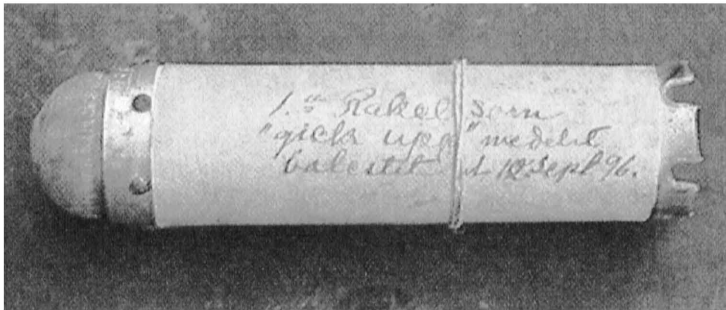 1.a Raket som
"gick upp" medelst
balestit d 12 Sept 96.